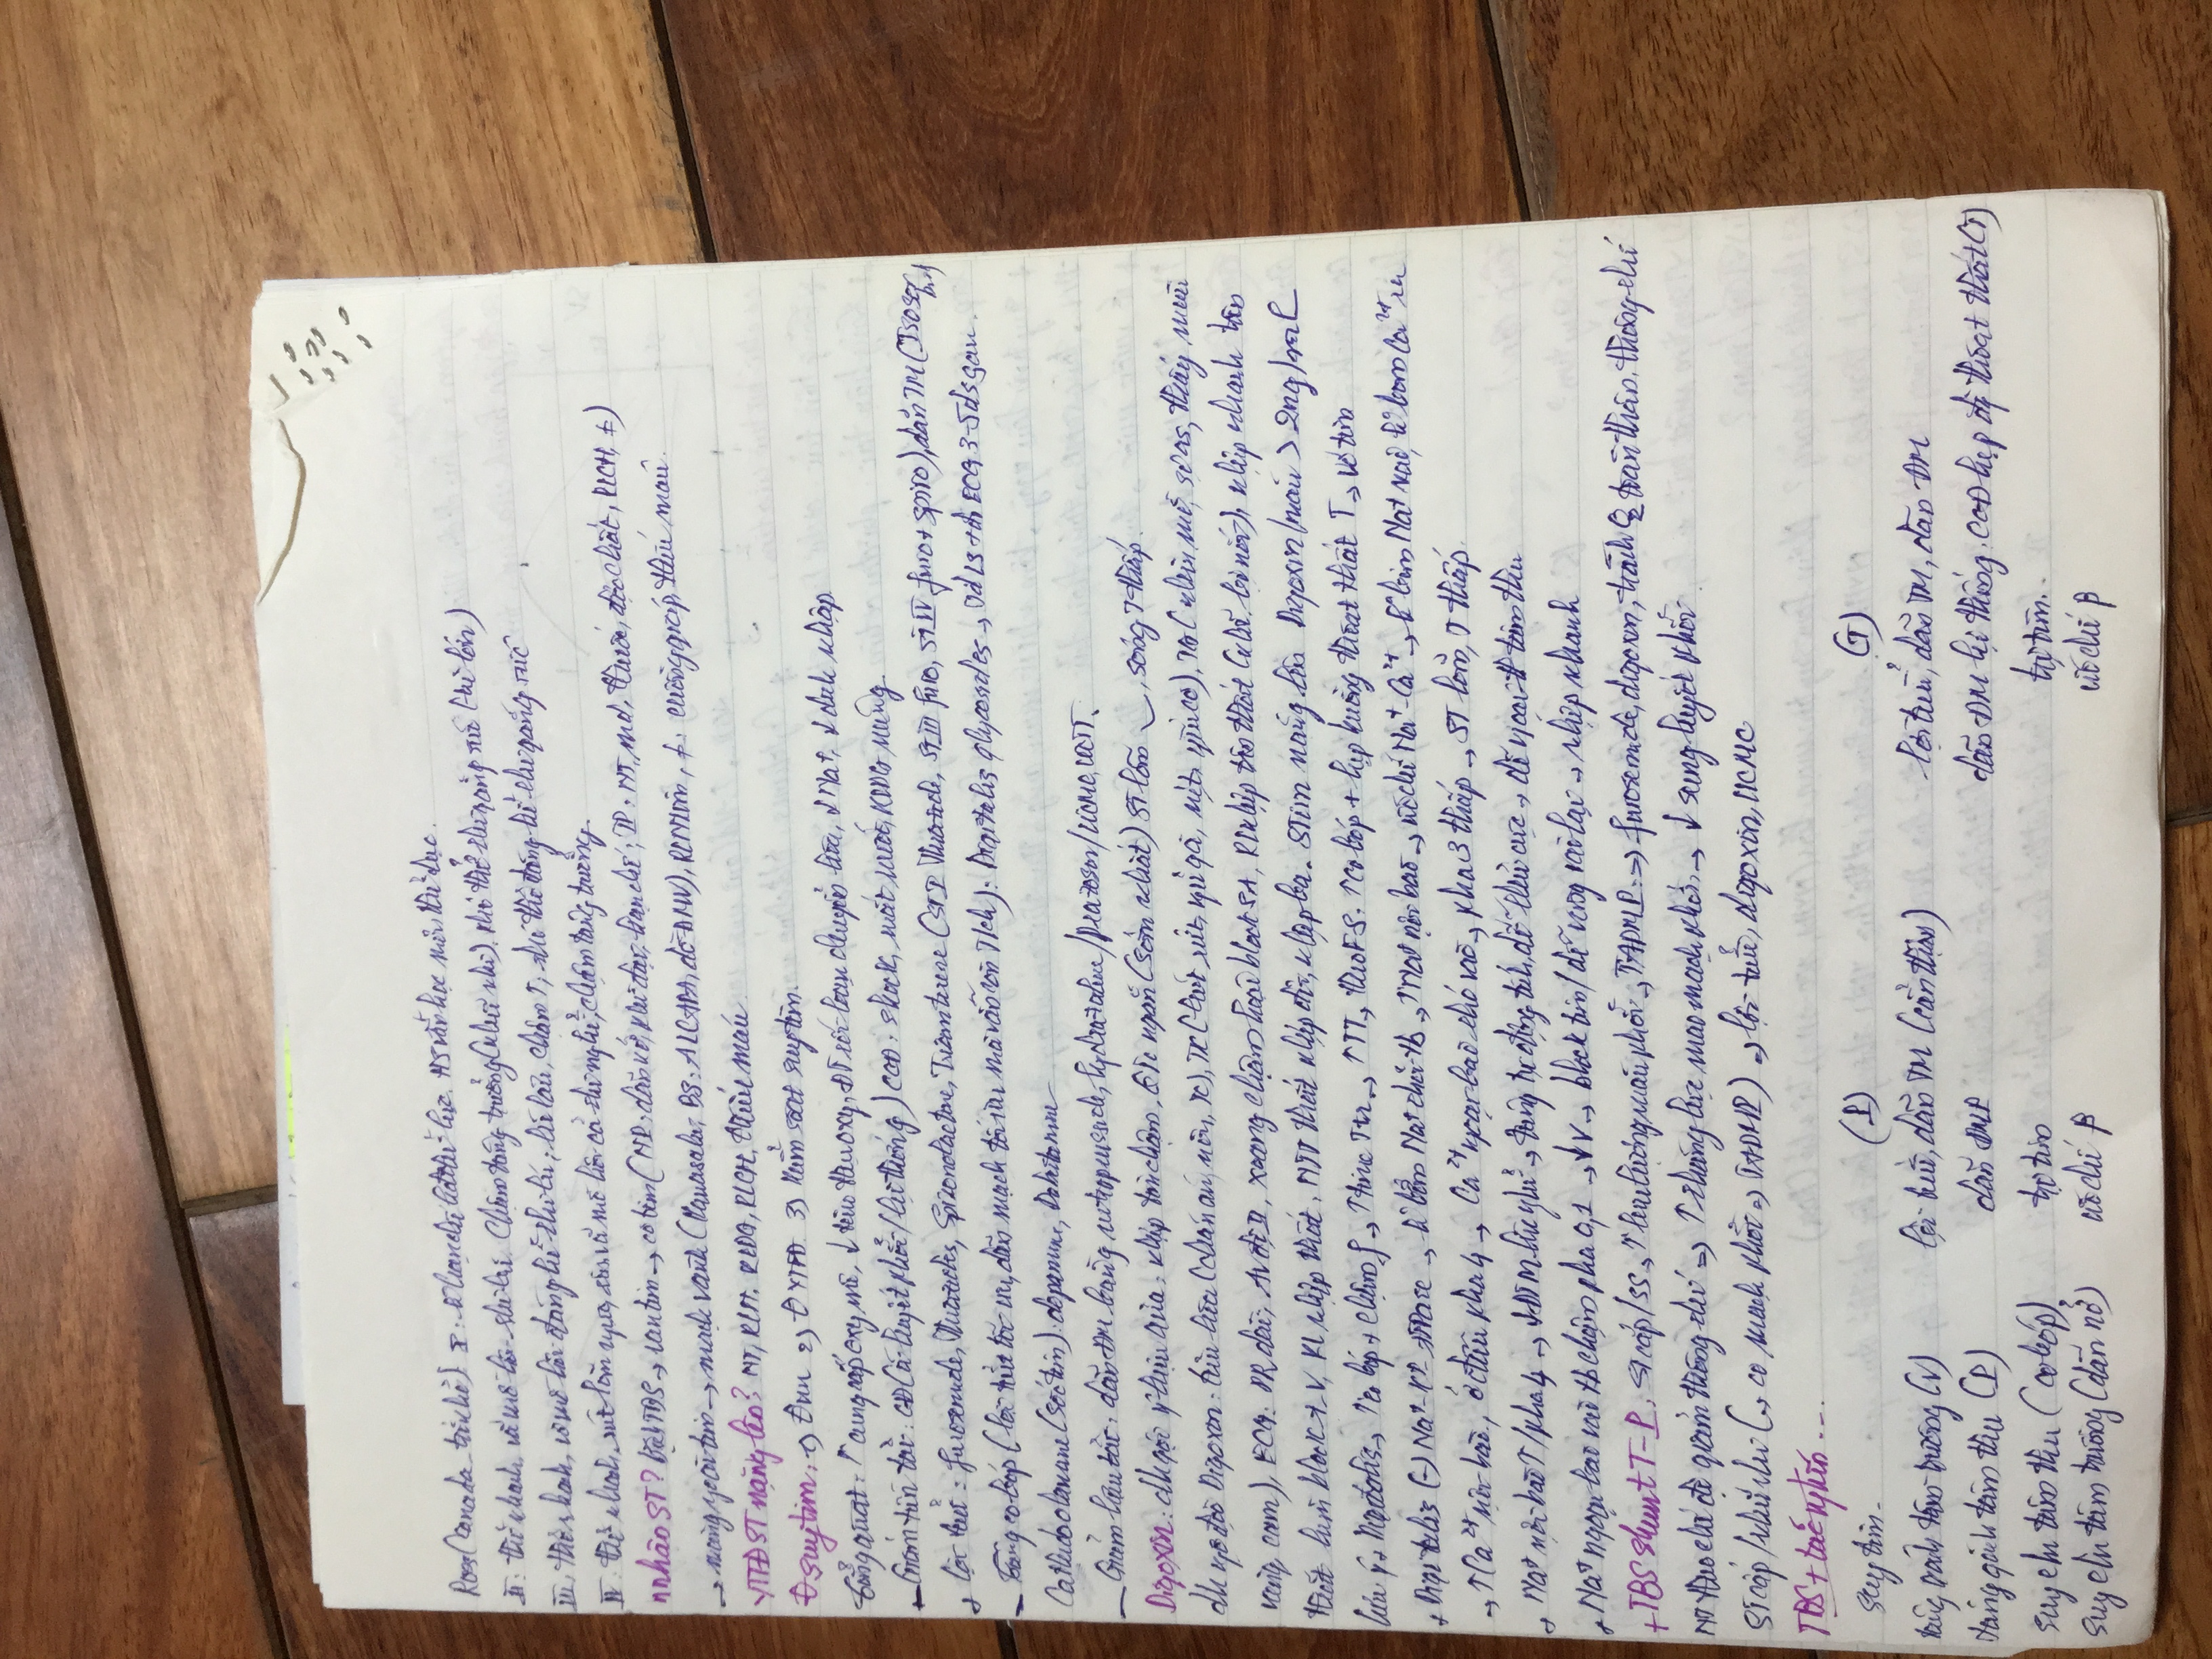 Ross (Canada
II: thở nhanh, vã mồ hôi khi bú. Chậm tăng trưởng (nhũ nhi). khó thở khi gắng sức (trẻ lớn)
III: thở nhanh, vã mồ hôi đáng kể khi bú; bú lâu, chậm ↑, khó thở đáng kể khi gắng sức
IV: thở nhanh, rút lõm ngực, vã mồ hôi cả khi nghỉ, chậm tăng trưởng.
nnhân ST? → van tim → cơ tim ( dãn nở, phì đại, hạn chế; NT, thuốc, độc chất, RLCH, ±)
→ màng ngoài tim → mạch vành (Kawasaki, BS: ALCAPA, dò ĐMV), RLNhịp, ≠: cường giáp, thiếu máu.
YTTĐ ST nặng lên? NT, RLN, RLĐG, RLCH, thiếu máu
Đ suy tim: 1) Đ nn 2) Đ YTTĐ 3) Kiểm soát suy tim.
Tổng quát: ↑ cung cấp oxy mô, ↓ tiêu thụ oxy, ĐT rối loạn chuyển hóa, ↓ Na⁺, ↓ dịch nhập
- Giảm tiền tải: CĐ (sung huyết phổi/hệ thống) CCĐ: shock, mất nước, RLĐG nặng.
+ lợi tiểu: furosemide, thiazides, Spironolactone, Triamterene (ST II thiazide, ST III furo, ST IV furo + spiro), dãn TM
- Tăng co bóp (lợi tiểu tối ưu, dãn mạch tối ưu mà vẫn còn T/ch): Digitalis glycosides → ECG 3-5d sau.
Cathecholamine (sốc tim): dopamine, Dobutamine
- Giảm hậu tải: dãn ĐM bằng nitroprusside, hydralazine/Prazosin/UCMC, UCTT.
Digoxin: dh gợi ý hiệu quả: nhịp tim chậm, QTc ngắn (sớm nhất) ST lõm ◡, sóng T thấp.
dh ngộ độc Digoxin: tiêu hóa (chán ăn, nôn, TC), TK ( yếu cơ), TG (nhìn mờ, sợ as, thấy màu
vàng, cam), ECG: PR dài, AV độ II, xoang chậm hoặc block SA, RL nhịp trên thất , nhịp nhanh trên
thất kèm block A-V, RL nhịp thất, NTT thất nhịp đôi, nhịp ba. ST tim nặng lên Digoxin/máu > 2ng/mL
lưu ý + Digitalis → ↑ co bóp + chậm f → ↑ time TTr → ↑ TT, theo FS. ↑ co bóp + hẹp buồng thoát thất T → vỡ tim
+ Digitalis (-) Na⁺-K⁺-ATPase → k bơm Na⁺ khỏi tb → ↑ Na⁺ nội bào → ức chế Na⁺-Ca²⁺ → k bơm Na⁺ vào, k bơm Ca²⁺ ra
→ ↑ Ca²⁺ nội bào, ở đầu pha 4 → Ca²⁺ ngoại bào khó vào → pha 3 thấp → ST lõm, T thấp.
+ Na⁺ nội bào ↑/pha 4 → ↓ ĐTM lúc nghỉ → tăng tự động tính, dễ khử cực → dễ ngoại tt tâm thu
+ Na⁺ ngoại bào vào tb chậm pha 0,1 → ↓ V → block tim/dễ vòng vào lại → nhịp nhanh
+ TBS shunt T-P: ST cấp/SS → ↑ lưu lượng máu phổi → TAĐMP → furosemide, digoxin, tránh O₂ toàn thân, thông khí
NT theo chế độ giảm thông khí → ↑ kháng lực mao mạch phổi → ↓ sung huyết phổi
ST cấp/nhũ nhi (→ co mạch phổi → TAĐMP) → lợi tiểu, digoxin, UCMC
TBS + tắc nghẽn ...
suy tim (P) (T)
tăng gánh tâm trương (V) lợi tiểu, dãn TM (cẩn thận) lợi tiểu, dãn TM, dãn ĐM
tăng gánh tâm thu (P) dãn ĐMP dãn ĐM hệ thống. CCĐ hẹp đg thoát thất (T)
suy cn tâm thu (co bóp) trợ tim trợ tim.
suy cn tâm trương (dãn nở) ức chế β ức chế β